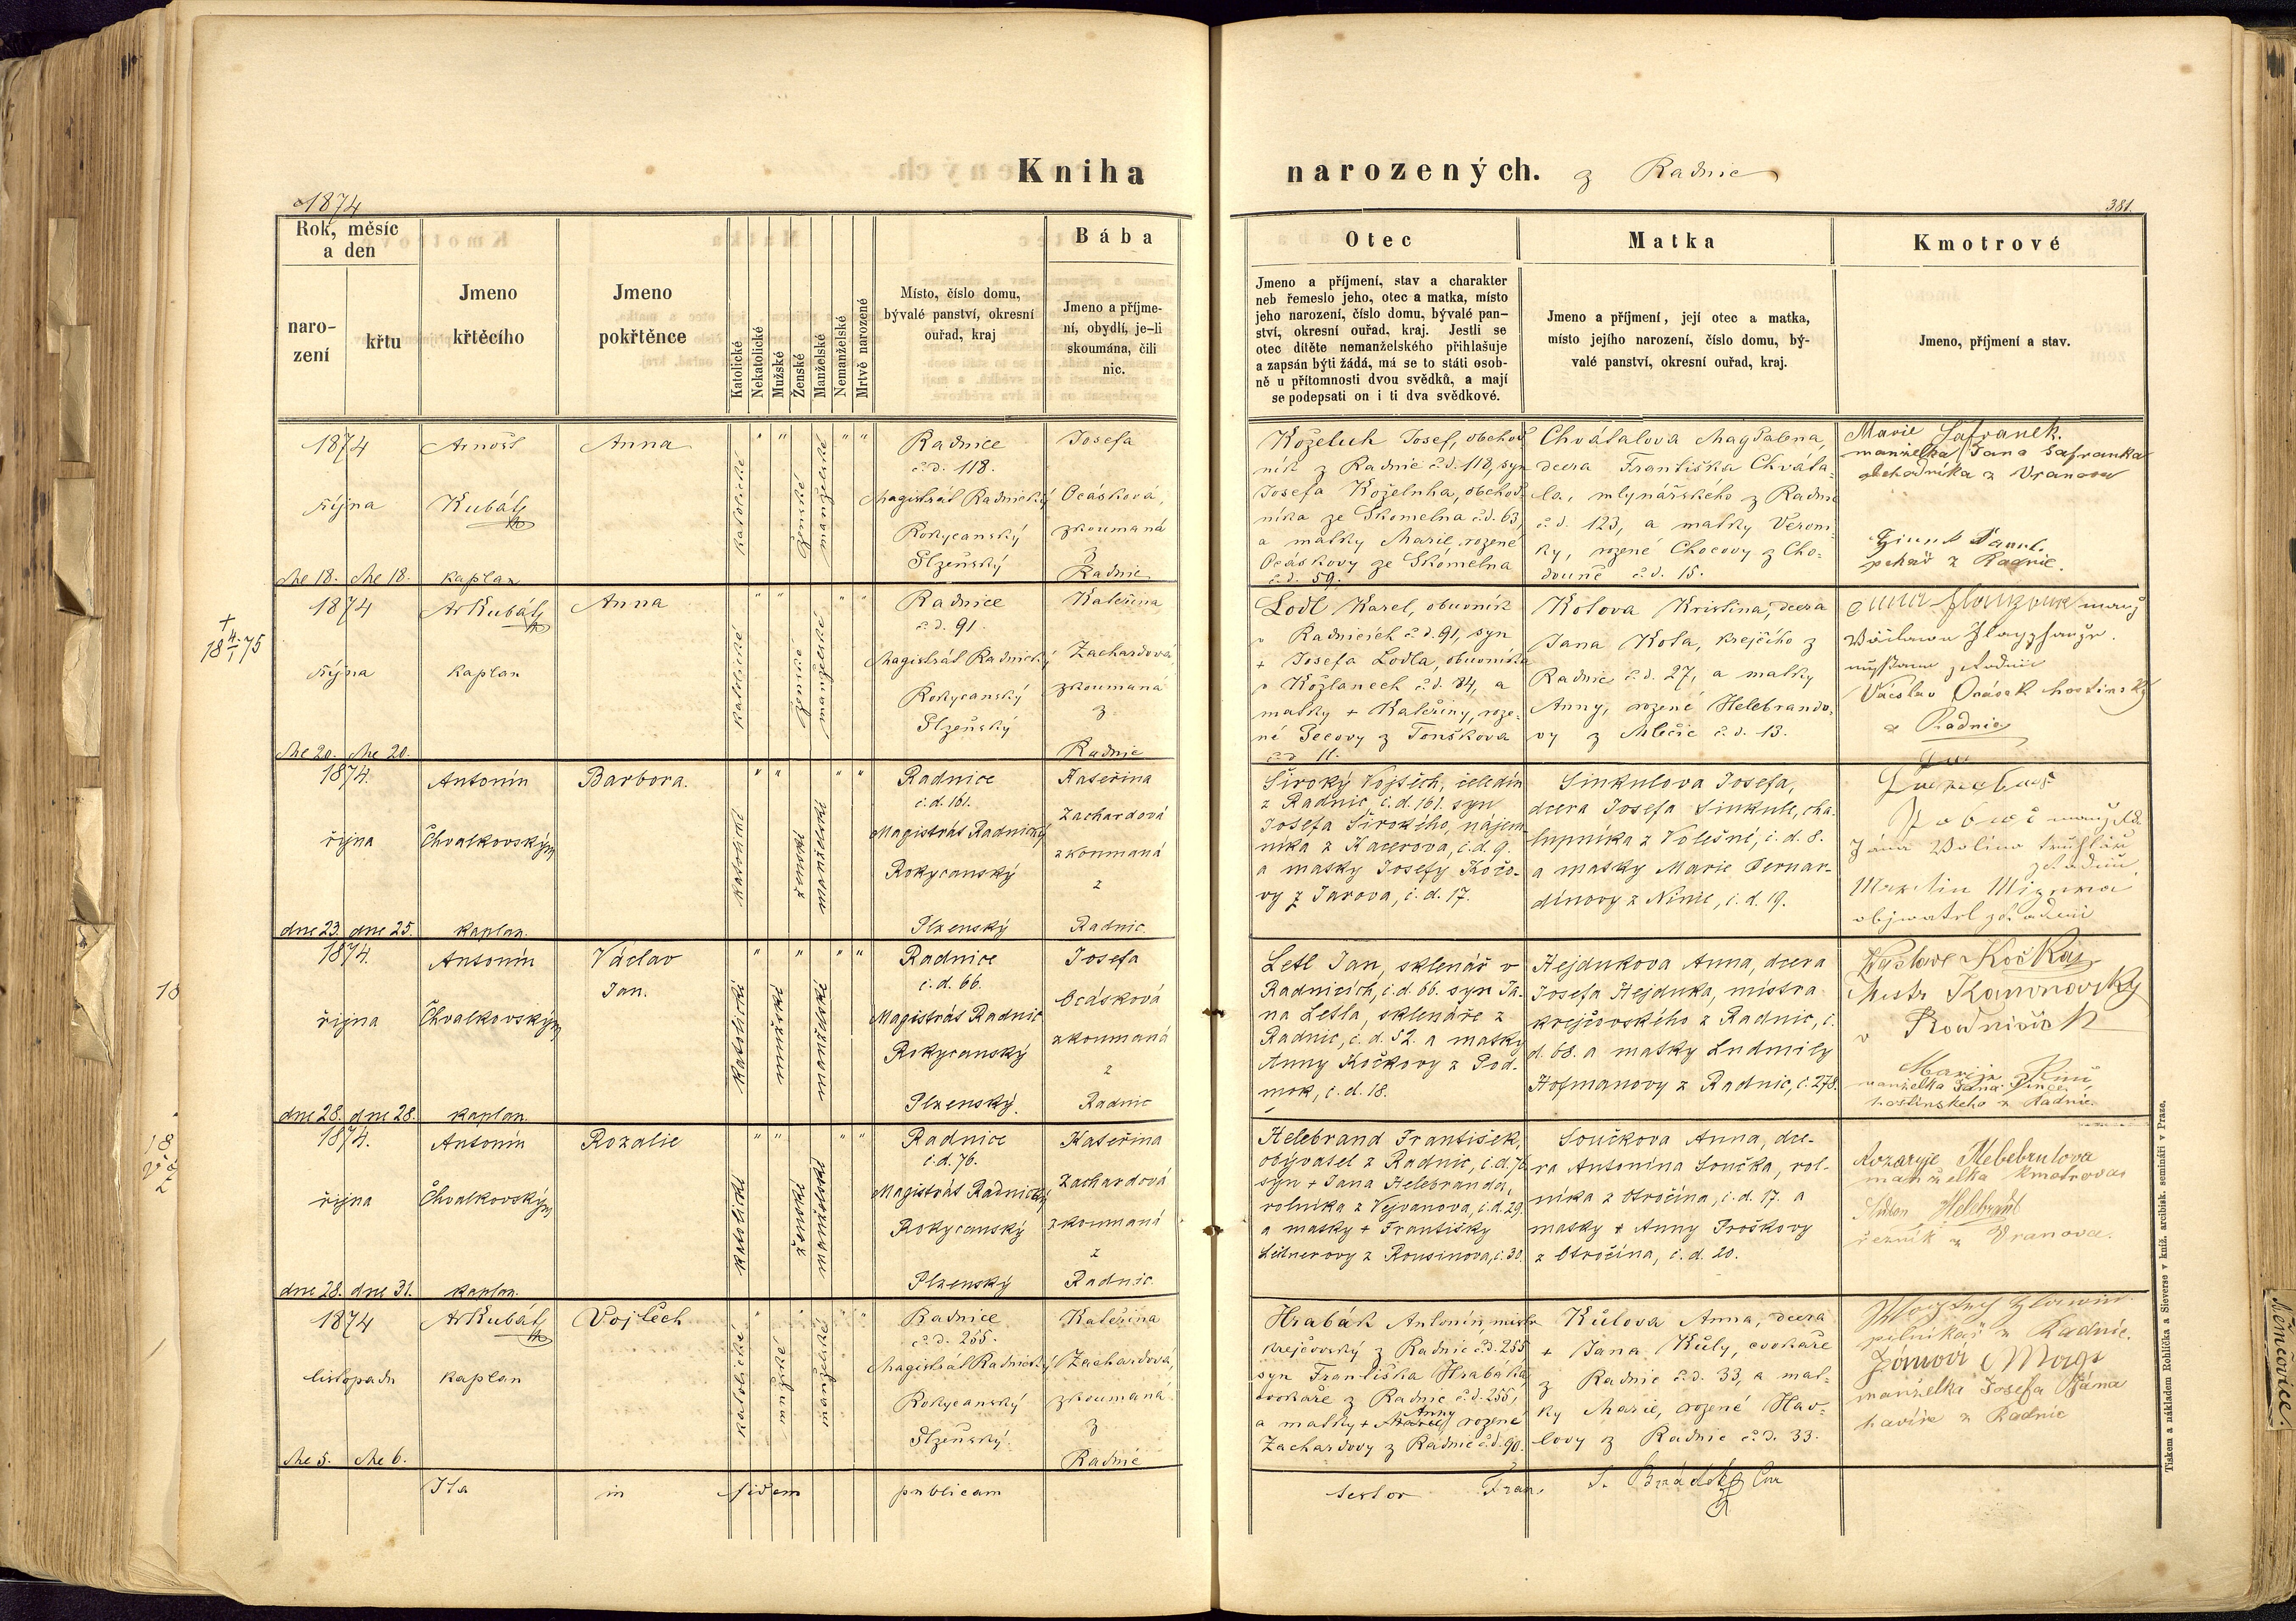 Kniha narozených. z Radnic
1874
381.
Rok, měsíc
a den
naro-
zení
křtu
Jmeno
křtěcího
Jmeno
pokřtěnce
Katolické
Nekatolické
Mužské
Ženské
Manželské
Nemanželské
Mrtvě narozené
Místo, číslo domu,
bývalé panství, okresní
ouřad, kraj
Bába
Jmeno a příjme-
ní, obydlí, je-li
skoumána, čili
nic.
Otec
Jmeno a příjmení, stav a charakter
neb řemeslo jeho, otec a matka, místo
jeho narození, číslo domu, bývalé pan-
ství, okresní ouřad, kraj. Jestli se
otec dítěte nemanželského přihlašuje
a zapsán býti žádá, má se to státi osob-
ně u přítomnosti dvou svědků, a mají
se podepsati on i ti dva svědkové.
Matka
Jmeno a příjmení, její otec a matka,
místo jejího narození, číslo domu, bý-
valé panství, okresní ouřad, kraj.
Kmotrové
Jmeno, příjmení a stav.
1874
října
dne 18. dne 18.
Arnošt
Kubát
kaplan
Anna
katolické
ženské
manželské
Radnice
č.d. 118.
Magistrát Radnický
Rokycanský
Plzeňský
Josefa
Ocásková,
zkoumaná
z
Radnic
Koželuh Josef, obchod
ník z Radnic č.d. 118, syn
Josefa Koželuha, obchod
níka ze Skomelna č.d. 63,
a matky Marie, rozené
Ocáskovy ze Skomelna
č.d. 59.
Chválalova Magdalena,
dcera Františka Chvála-
la, mlynářského z Radnic
č.d. 123, a matky Veroni
ky, rozené Chocovy z Cho-
douně č.d. 15.
Marie Šafranek.
manželka Jana Šafranka
obchodníka z Vranova
pekař z Radnic.
+
18 4/1 75
1874
října
dne 20. dne 20.
Ar Kubát
kaplan
Anna
katolické
ženské
manželské
Radnice
č.d. 91.
Magistrát Radnický
Rokycanský
Plzeňský
Kateřina
Zachardová
zkoumaná
z
Radnic
Lodl Karel, obuvník
v Radnicích č.d. 91, syn
+ Josefa Lodla, obuvníka
v Kožlanech č.d. 84, a
matky + Kateřiny, roze-
né Pecovy z Tonškova
č.d. 11.
Kotova Kristina, dcera
Jana Kota, krejčího z
Radnic č.d. 27, a matky
Anny, rozené Helebrando-
vy z Mlečic č.d. 13.
Václav Ocásek hostinský
z Radnic
1874.
října
dne 23. dne 25.
Antonín
Chvalkovský
kaplan.
Barbora.
katolické
ženské
manželské
Radnice
č.d. 161.
Magistrát Radnický
Rokycanský
Plzenský
Kateřina
Zachardová
zkoumaná
z
Radnic.
Široký Vojtěch, čeledín
z Radnic, č.d. 161. syn
Josefa Širokého, nájem
níka z Kacerova, č.d. 9.
a matky Josefy Kočo-
vy z Jarova, č.d. 17.
Sinkulova Josefa,
dcera Josefa Sinkule, cha-
lupníka z Volešné, č.d. 8.
a matky Marie Bernar-
dinovy z Ninic, č.d. 19.
Jána Wolino truhláře
z Radnic
Martin
1874.
října
dne 28. dne 28.
Antonín
Chvalkovský
kaplan.
Václav
Jan.
katolické
mužské
manželské
Radnice
č.d. 66.
Magistrát Radnic
Rokycanský
Plzenský.
Josefa
Ocásková
zkoumaná
z
Radnic
Letl Jan, sklenář v
Radnicích, č.d. 66. syn Ja-
na Letla, sklenáře z
Radnic, č.d. 52. a matky
Anny Kočkovy z Pod-
mok, č.d. 18.
Hejdukova Anna, dcera
Josefa Hejduka, mistra
krejčovského z Radnic, č.
d. 68. a matky Ludmily
Hofmanovy z Radnic, č. 278.
Václav Kočka
Mistr
v Radnicich
manželka Jana
hostinského z Radnic.
1874.
října
dne 28. dne 31.
Antonín
Chvalkovský
kaplan.
Rozalie
katolické
ženské
manželské
Radnice
č.d. 76.
Magistrát Radnický
Rokycanský
Plzenský
Kateřina
Zachardová
zkoumaná
z
Radnic.
Helebrand František,
obyvatel z Radnic, č.d. 76
syn + Jana Helebranda,
rolníka z Vejvanova, č.d. 29.
a matky + Františky
Leitnerovy z Rousinova, č. 30.
Součkova Anna, dce-
ra Antonína Součka, rol-
níka z Otročína, č.d. 17. a
matky + Anny Proškovy
z Otročína, č.d. 20.
manželka kmotrova
Anton Helebrant
řezník z Vranova.
1874
listopadu
dne 5. dne 6.
Ar Kubát
kaplan
Vojtěch
katolické
mužské
manželské
Radnice
č.d. 255.
Magistrát Radnický
Rokycanský
Plzeňský
Kateřina
Zachardová,
zkoumaná
z
Radnic
Hrabák Antonín, mistr
krejčovský z Radnic č.d. 255
syn Františka Hrabáka,
cvokaře z Radnic č.d. 255,
a matky + Anny rozené
Zachardovy z Radnic č.d. 90.
Kůlova Anna, dcera
+ Jana Kůly, cvokaře
z Radnic č.d. 33, a mat-
ky Marie, rozené Hav-
lovy z Radnic č.d. 33.
pilníkař z Radnic.
manželka Josefa Jána
havíře z Radnic
Ita in fidem publicam testor Fran. S.
Tiskem a nákladem Rohlíčka a Sieverse v kníž. arcibisk. semináři v Praze.
Němčovice.